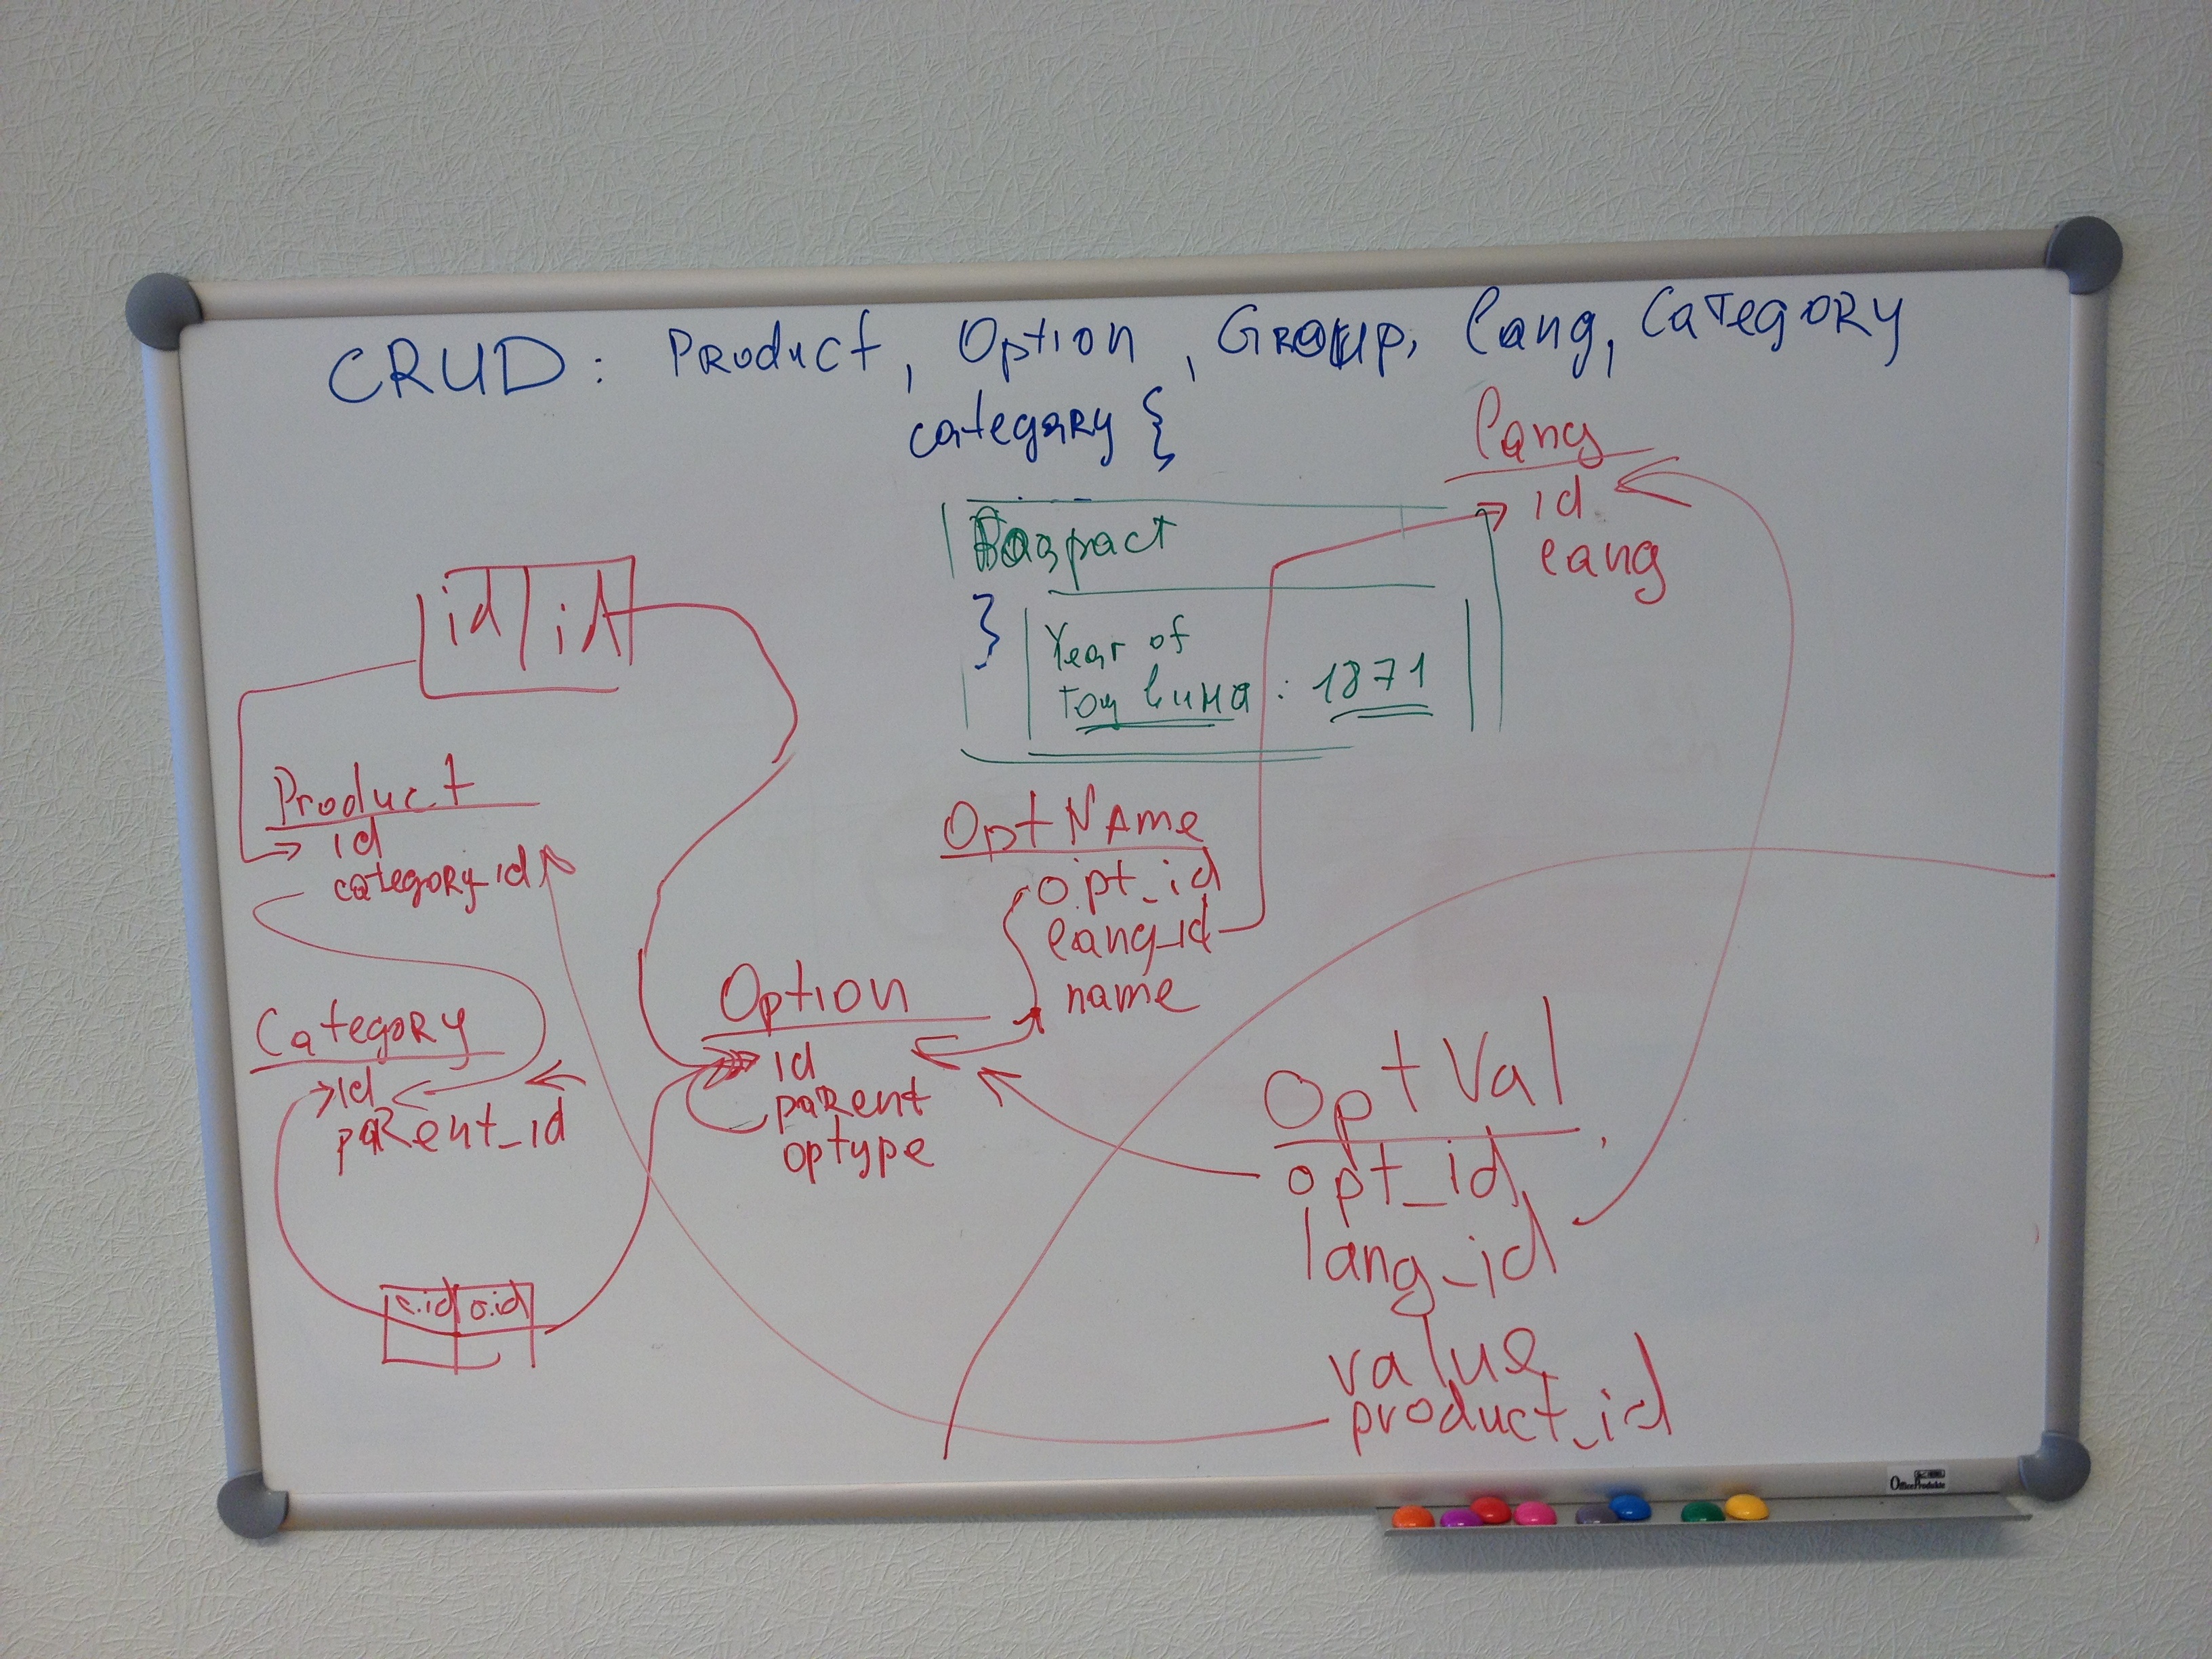 CRUD: Product, Option, Group, lang, Category
category {
Возраст
}
Year of
Год вина : 1871
lang
id
lang
id id
Product
id
category_id
Category
id
parent_id
c.id o.id
Option
id
parent
optype
Opt Name
opt_id
lang_id
name
Opt Val
opt_id
lang_id
value
product_id
OfficeProdukte